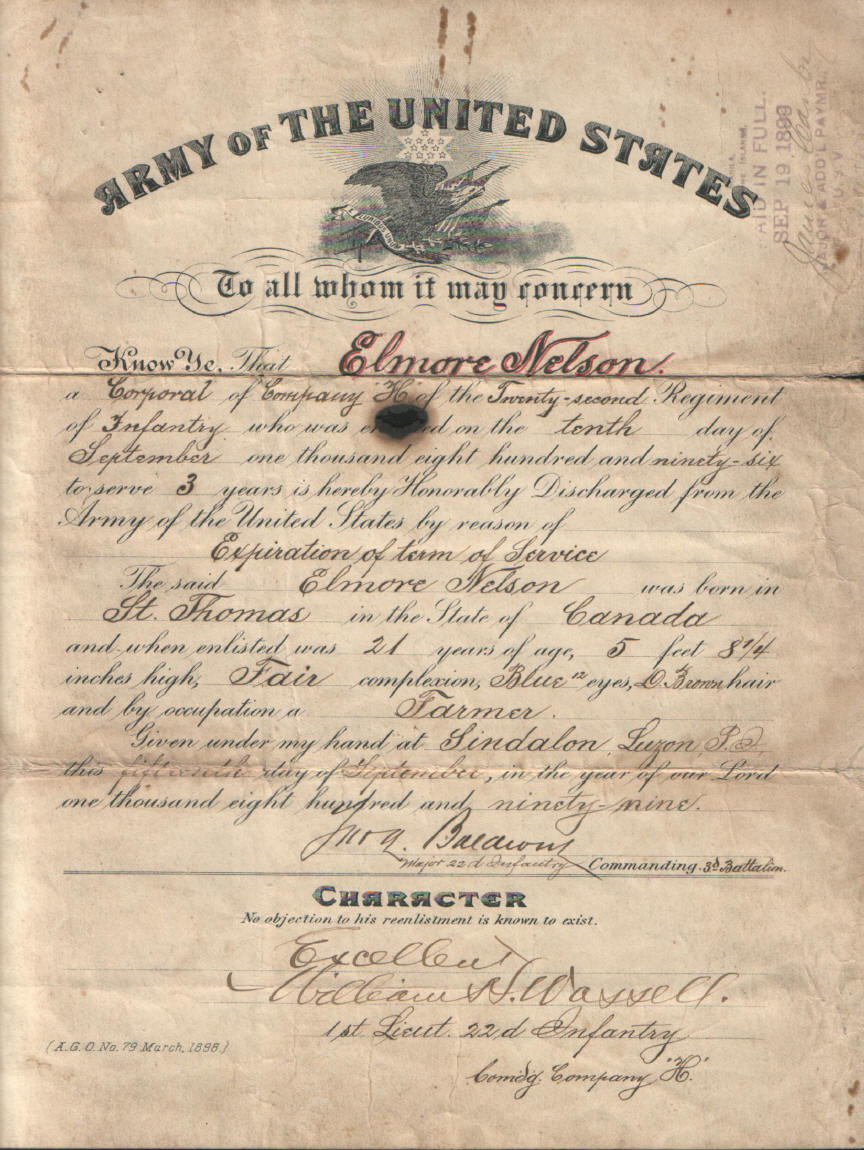 ARMY OF THE UNITED STATES
E PLURIBUS UNUM
To all whom it may concern
Know Ye, That Elmore Nelson.
a Corporal of Company "H" of the Twenty-second Regiment
of Infantry who was en d on the tenth day of
September one thousand eight hundred and ninety-six
to serve 3 years is hereby Honorably Discharged from the
Army of the United States by reason of
Expiration of term of Service
The said Elmore Nelson was born in
St. Thomas in the State of Canada
and when enlisted was 21 years of age, 5 feet 8 1/4
inches high, Fair complexion, Blue 12 eyes, D. Brown hair
and by occupation a Farmer.
Given under my hand at Sindalon, Luzon P.I.
this fifteenth day of September, in the year of our Lord
one thousand eight hundred and ninety-nine.
Jno A. Baldwin
Major 22d Infantry Commanding 3d Battalion.
CHARACTER
No objection to his reenlistment is known to exist.
Excellent
William H. Wassell.
1st Lieut. 22d Infantry
Comdg. Company "H."
(A.G.O. No. 79 March, 1898.)
AID IN FULL.
SEP 19 1899
MAJOR & ADD'L PAYMR.
U.S.V.